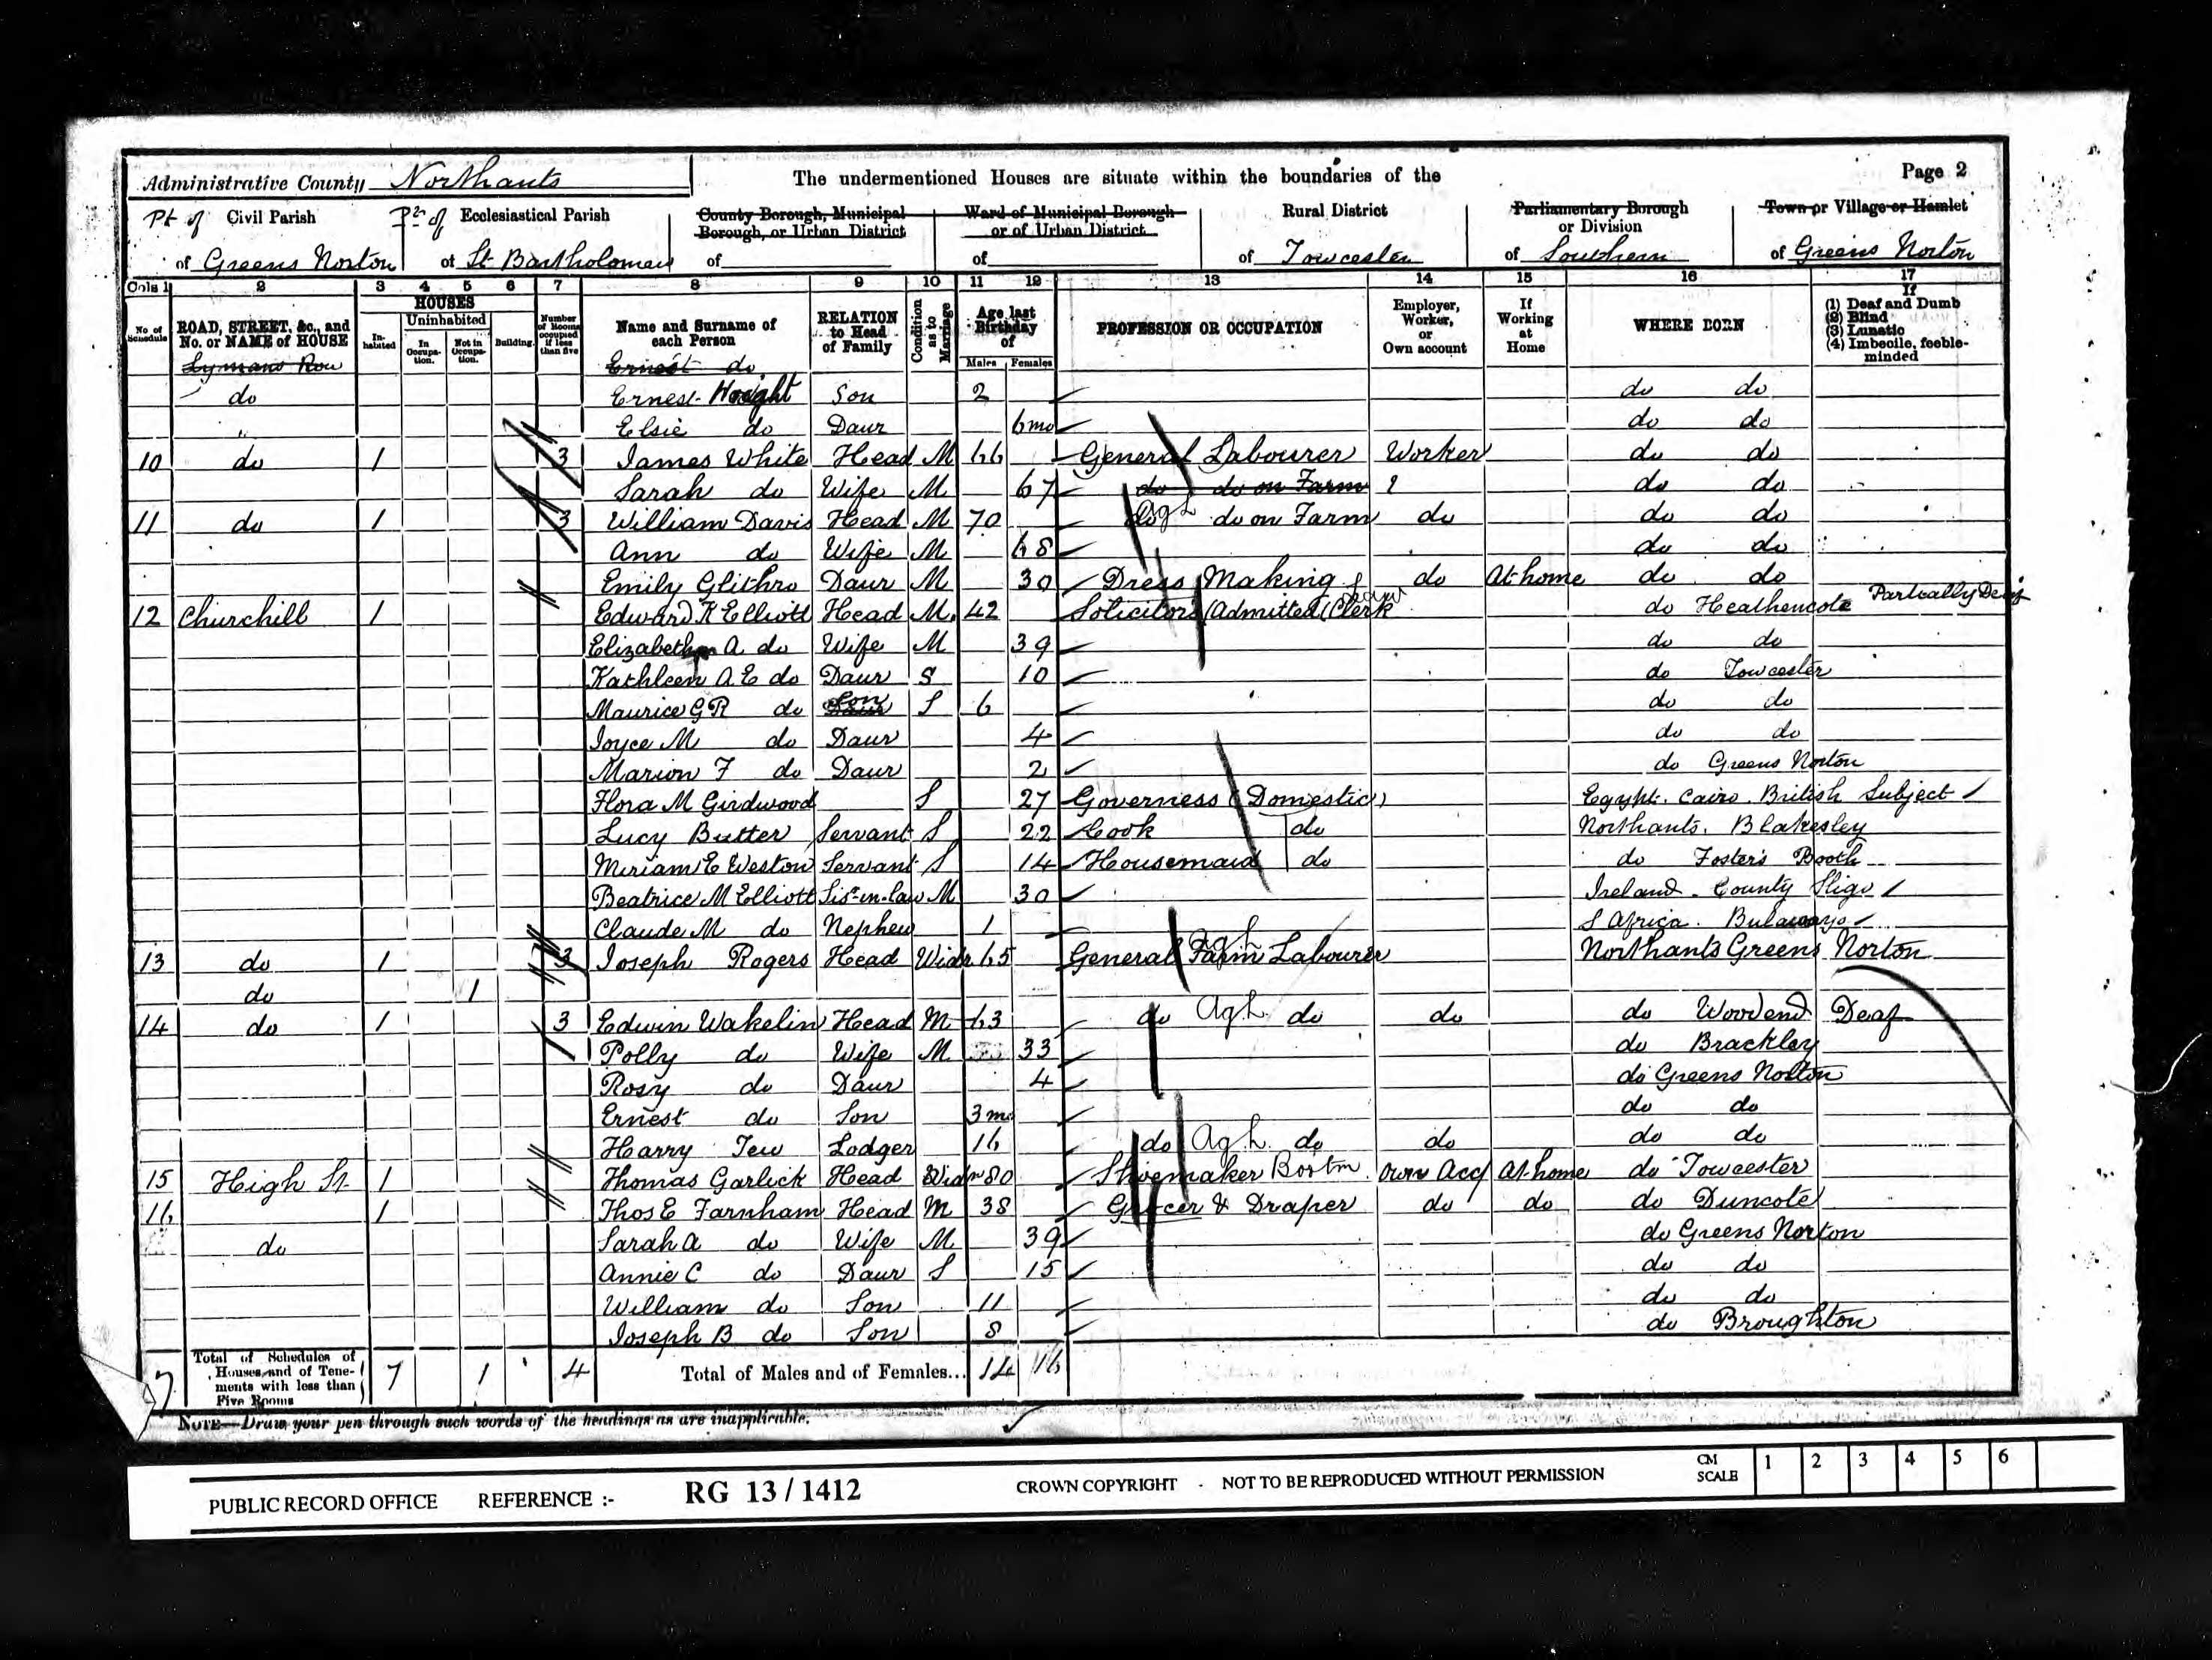 Page 2
Administrative County Northants The undermentioned Houses are situate within the boundaries of the
Pt of Civil Parish Pt of Ecclesiastical Parish County Borough, Municipal Borough, or Urban District Ward of Municipal Borough or of Urban District Rural District Parliamentary Borough or Division Town or Village or Hamlet
of Greens Norton of St Bartholomews of of of Towcester of Southern of Greens Norton
Cols 1 2 3 4 5 6 7 8 9 10 11 12 13 14 15 16 17
No of Schedule ROAD, STREET, &c., and No. or NAME of HOUSE HOUSES Inhabited Uninhabited In Occupation. Not in Occupation. Building. Number of Rooms occupied if less than five Name and Surname of each Person RELATION to Head of Family Condition as to Marriage Age last Birthday of Males Females PROFESSION OR OCCUPATION Employer, Worker, or Own account If Working at Home WHERE BORN If (1) Deaf and Dumb (2) Blind (3) Lunatic (4) Imbecile, feeble-minded
Ernest do
do Ernest Son 2 do do
" Elsie do Daur 6mo do do
10 do 1 3 James White Head M 66 General Labourer Worker do do
Sarah do Wife M 67 do do on Farm do do
11 do 1 3 William Davis Head M 70 Ag L do on Farm do do do
Ann do Wife M 68 do do
Emily Glithro Daur M 30 Dress Making do At home do do
12 Churchill 1 Edward R Elliott Head M 42 Solicitors (Admitted) Clerk do Heathencote Partially Deaf
Elizabeth A do Wife M 39 do do
Kathleen A E do Daur S 10 do Towcester
Maurice G R do Son S 6 do do
Joyce M do Daur 4 do do
Marion F do Daur 2 do Greens Norton
Flora M Girdwood S 27 Governess (Domestic) Egypt. Cairo. British Subject
Lucy Butter Servant S 22 Cook do Northants. Blakesley
Miriam E Weston Servant S 14 Housemaid do do Foster's Booth
Beatrice M Elliott Sis-in-law M 30 Ireland. County Sligo
Claude M do Nephew 1 S Africa. Bulawayo
13 do 1 3 Joseph Rogers Head Widr 65 General Ag L Farm Labourer Northants Greens Norton
do 1
14 do 1 3 Edwin Wakelin Head M 63 do Ag L do do do Woodend Deaf
Polly do Wife M 33 do Brackley
Rosy do Daur 4 do Greens Norton
Ernest do Son 3mo do do
Harry Tew Lodger 16 do Ag L do do do do
15 High St 1 Thomas Garlick Head Widr 80 Shoemaker Own Acc At home do Towcester
16 1 Thos E Farnham Head M 38 Grocer & Draper do do do Duncote
do Sarah A do Wife M 39 do Greens Norton
Annie C do Daur S 15 do do
William do Son 11 do do
Joseph B do Son 8 do Broughton
Total of Schedules of Houses, and of Tenements with less than Five Rooms 7 1 4 Total of Males and of Females... 14 16
NOTE—Draw your pen through such words of the headings as are inapplicable.
PUBLIC RECORD OFFICE REFERENCE :- RG 13 / 1412 CROWN COPYRIGHT - NOT TO BE REPRODUCED WITHOUT PERMISSION CM SCALE 1 2 3 4 5 6